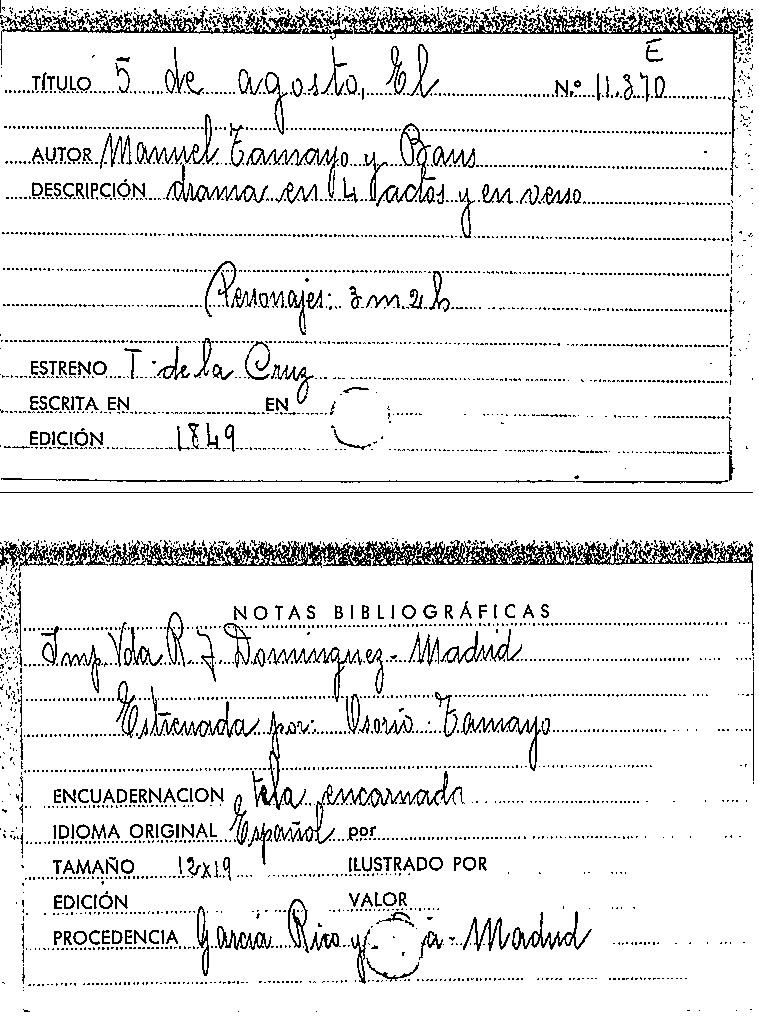 E
TÍTULO 5 de agosto, El N.º 11.370
AUTOR Manuel Tamayo y Baus
DESCRIPCIÓN drama en 4 actos y en verso
Personajes: 3 m 2 h
ESTRENO T. de la Cruz
ESCRITA EN EN
EDICIÓN 1849
NOTAS BIBLIOGRÁFICAS
Imp. Vda R. J. Dominguez - Madrid
Estrenada por: Osorio - Tamayo
ENCUADERNACION tela encarnada
IDIOMA ORIGINAL Español por
TAMAÑO 12x19 ILUSTRADO POR
EDICIÓN VALOR
PROCEDENCIA García Rico y a - Madrid